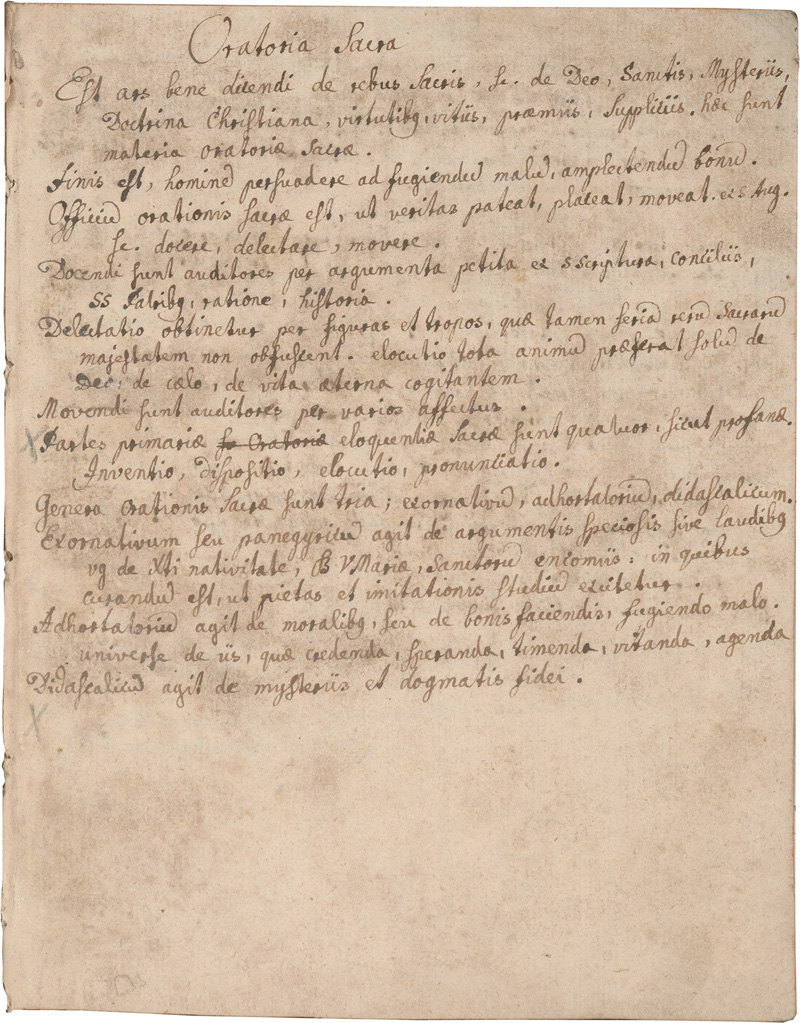 Oratoria Sacra
Est ars bene dicendi de rebus Sacris, sc. de Deo, Sanctis, Mysteriis,
Doctrina Christiana, virtutibq, vitiis, præmiis, Suppliciis. hæc sunt
materia oratoriæ Sacræ.
Finis est, hominē persuadere ad fugiendū malū, amplectendū bonū.
Officiū orationis sacræ est, ut veritas pateat, placeat, moveat. ex S Aug.
sc. docere, delectare, movere.
Docendi sunt auditores per argumenta petita ex S scriptura, conciliis,
SS Patribq, ratione, historia.
Delectatio obtinetur per figuras et tropos, quæ tamen seriā rerū Sacrarū
majestatem non obfuscent. elocutio tota animū præferat solū de
Deo, de cælo, de vita æterna cogitantem.
Movendi sunt auditores per varios affectus.
Partes primariæ Oratoriæ eloquentiæ Sacræ sunt quatuor, sicut profanæ.
Inventio, dispositio, elocutio, pronunciatio.
Genera orationis Sacræ sunt tria; exornativū, adhortatoriū, didascalicum.
Exornativum seu panegyricū agit de argumentis speciosis sive laudibq
vg de Xti nativitate, B V Mariæ, Sanctorū encomiis: in quibus
curandū est, ut pietas et imitationis studiū excitetur.
Adhortatoriū agit de moralibq, seu de bonis faciendis, fugiendo malo.
universe de iis, quæ credenda, speranda, timenda, vitanda, agenda
Didascalicū agit de mysteriis et dogmatis fidei.